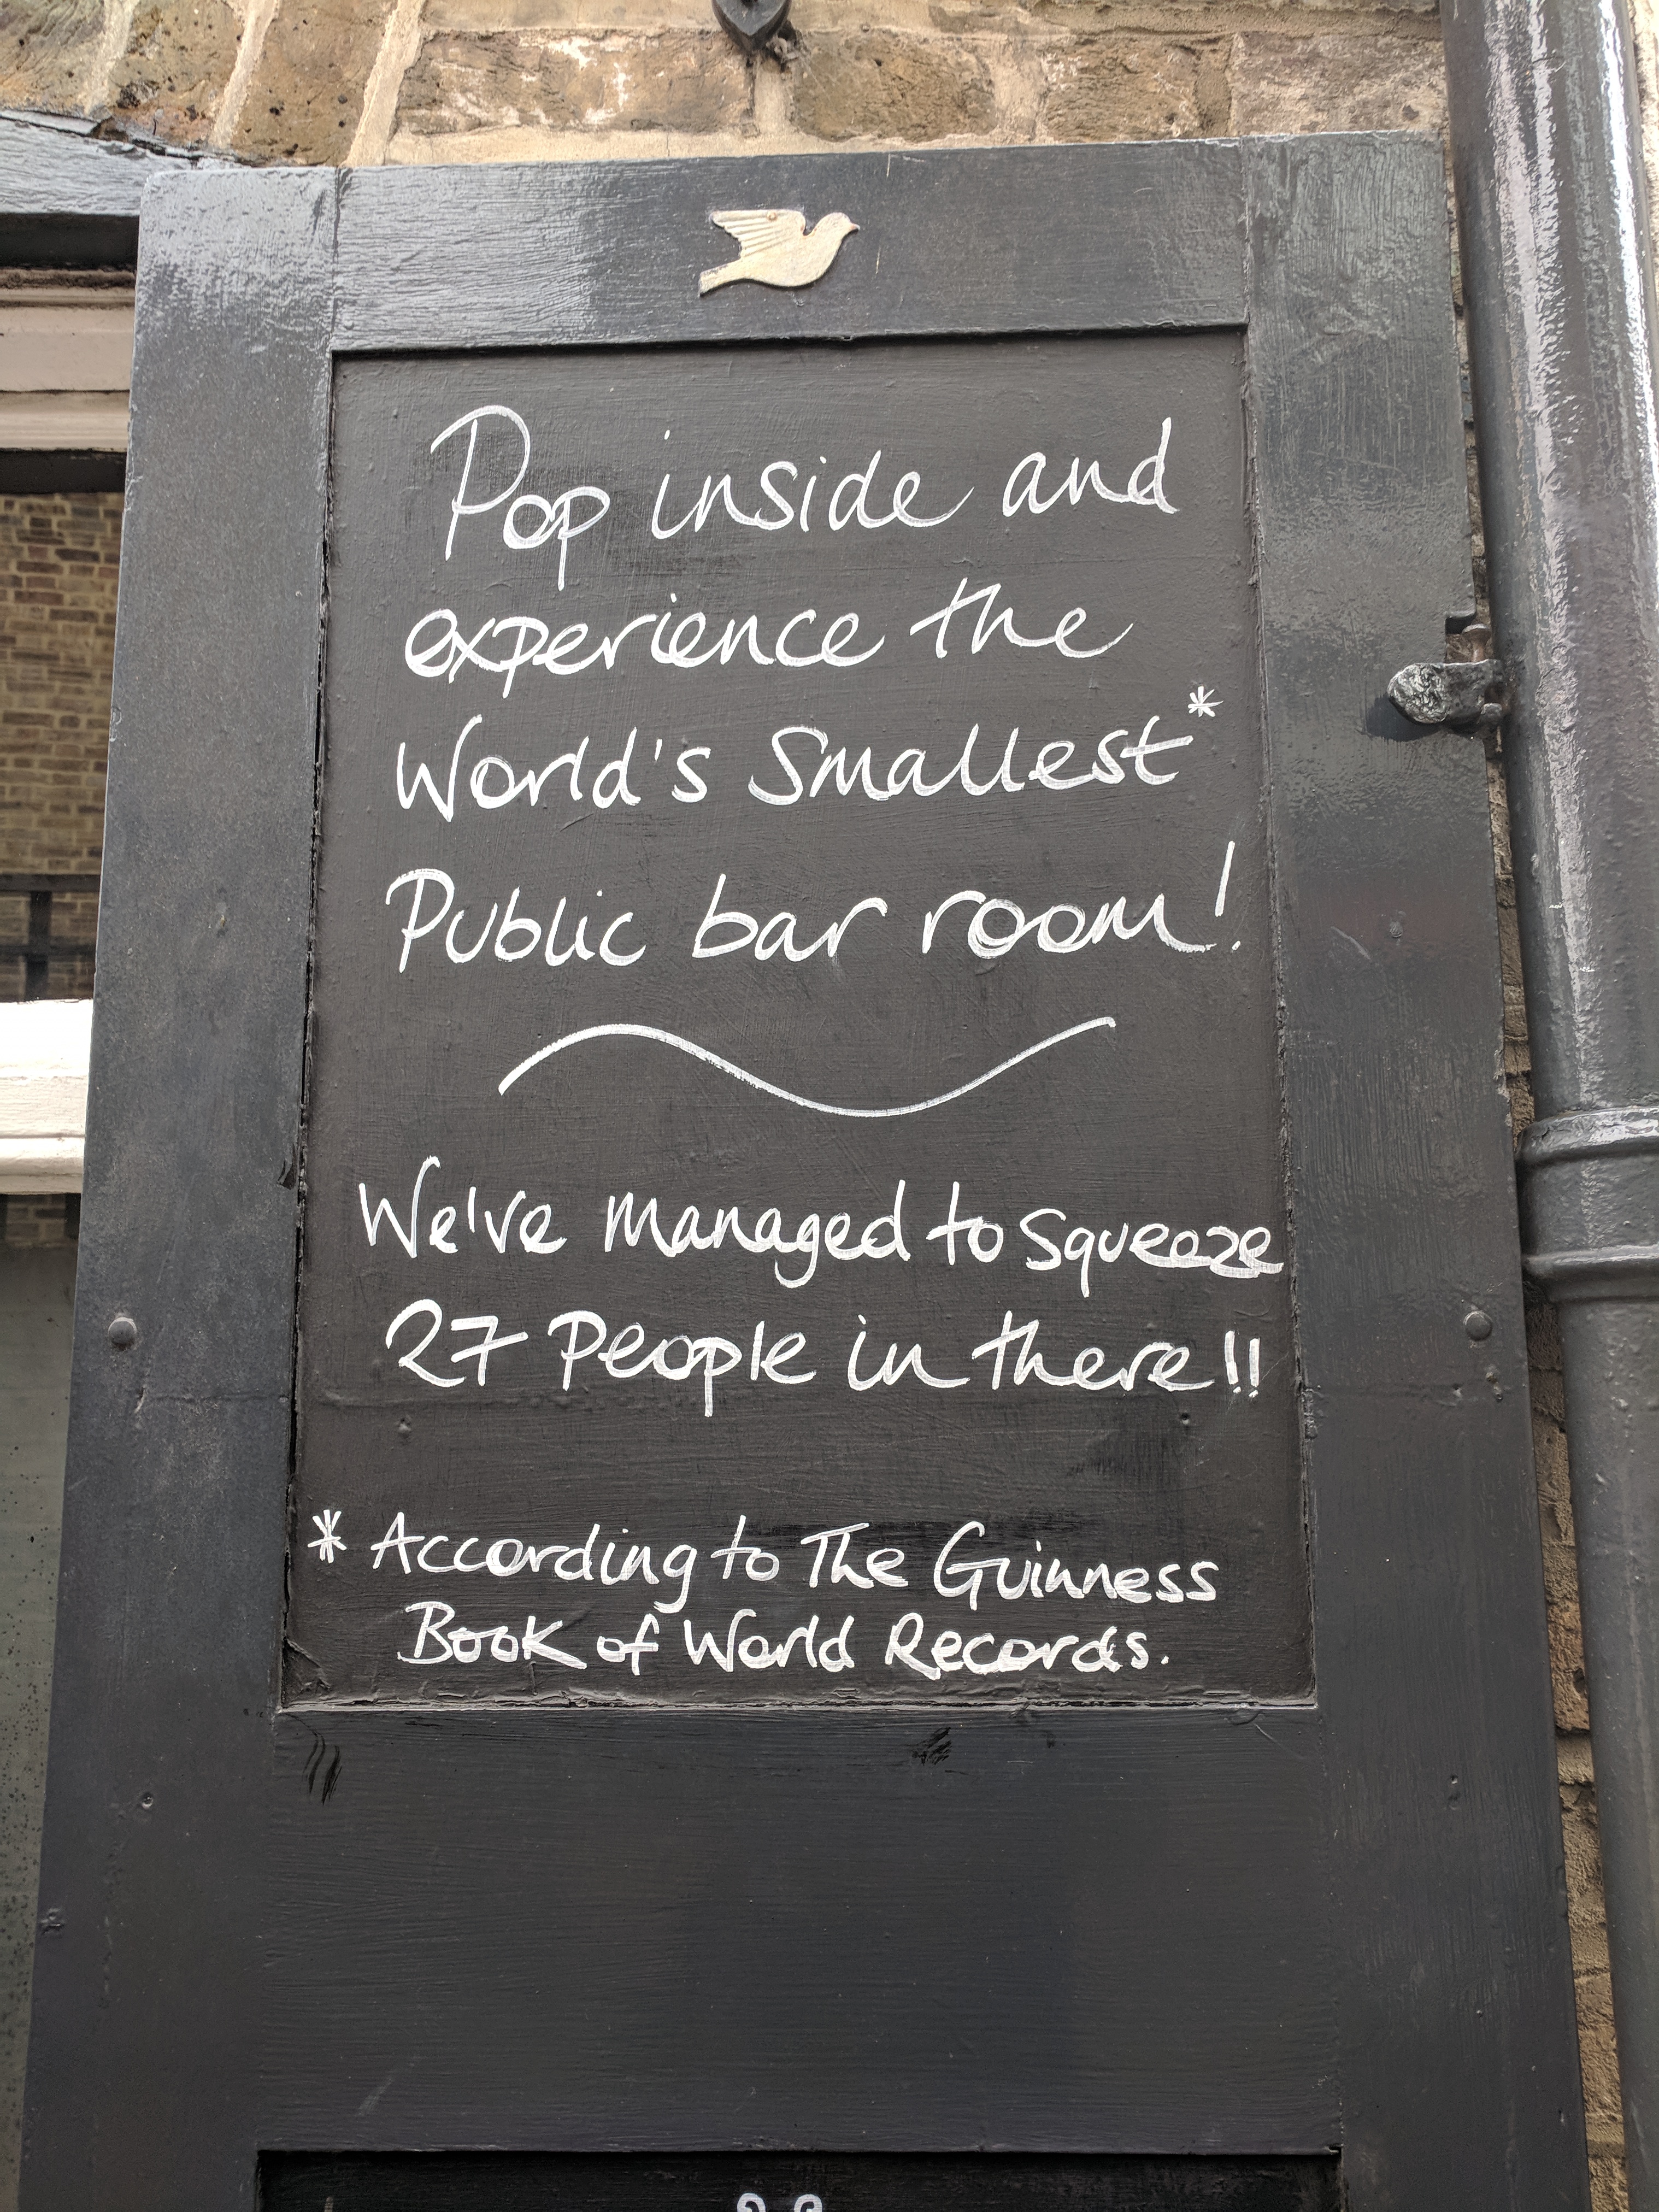 Pop inside and
experience the
World's Smallest*
Public bar room!
We've managed to squeeze
27 People in there!!
* According to The Guinness
Book of World Records.